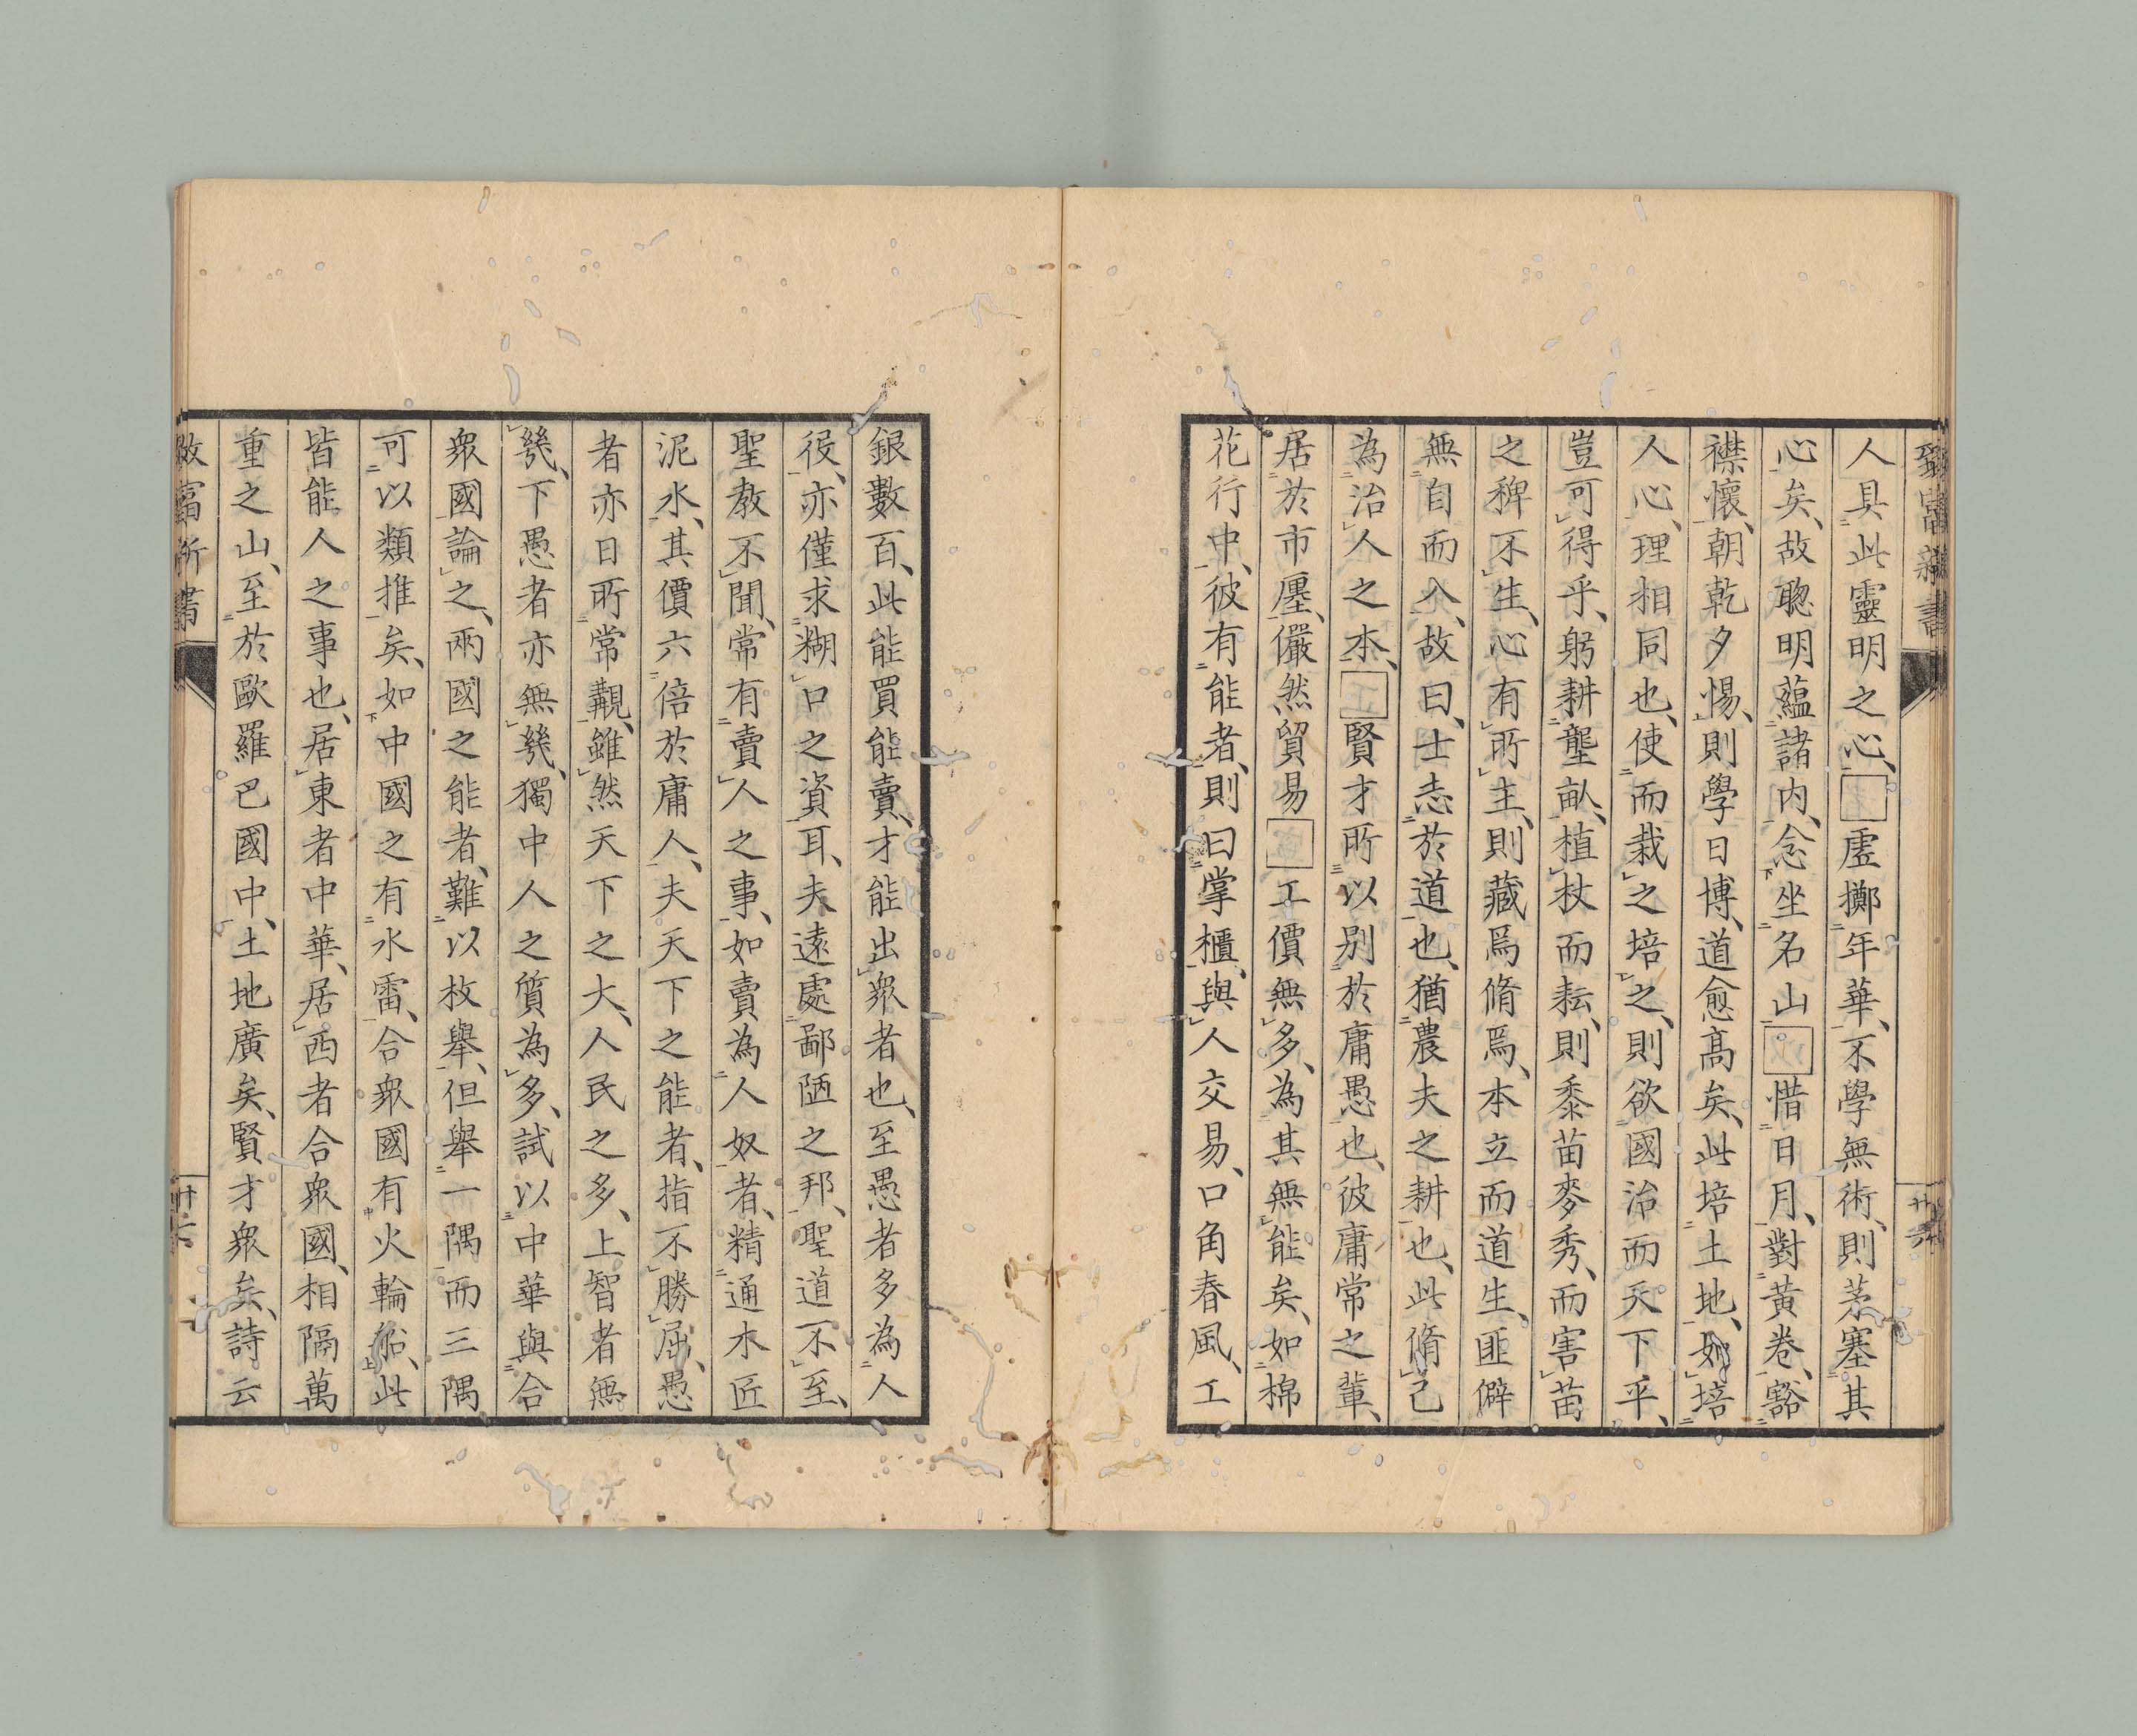 人具此靈明之心、虛擲年華、不學無術、則茅塞其
心矣、故聰明蘊諸内、念坐名山惜日月、對黃卷、豁
襟懷、朝乾夕惕、則學日博、道愈高矣、此培土地、如培
人心、理相同也、使而栽之培之、則欲國治而天下平、
豈可得乎、躬耕壟畝、植杖而耘、則黍苗麥秀、而害苗
之稗不生、心有所主、則藏焉脩焉、本立而道生、匪僻
無自而入、故曰、士志於道也、猶農夫之耕也、此脩己
為治人之本、賢才所以别於庸愚也、彼庸常之輩、
居於市廛、儼然貿易工價無多、為其無能矣、如棉
花行中、彼有能者、則曰掌櫃、與人交易、口角春風、工
銀數百、此能買能賣、才能出衆者也、至愚者多為人
役、亦僅求糊口之資耳、夫遠處鄙陋之邦、聖道不至、
聖教不聞、常有賣人之事、如賣為人奴者、精通木匠
泥水、其價六倍於庸人、夫天下之能者、指不勝屈、愚
者亦日所常覯、雖然天下之大、人民之多、上智者無
幾、下愚者亦無幾、獨中人之質為多、試以中華與合
衆國論之、兩國之能者、難以枚舉、但舉一隅而三隅
可以類推矣、如中國之有水雷、合衆國有火輪船、此
皆能人之事也、居東者中華、居西者合衆國、相隔萬
重之山、至於歐羅巴國中、土地廣矣、賢才衆矣、詩云